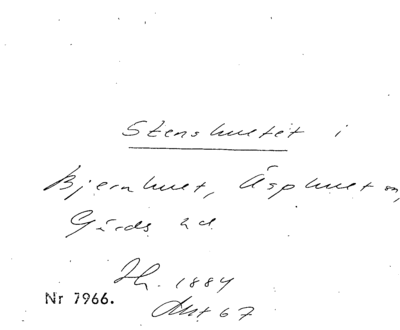 Stenshultet i
Bjernhult, Äsphult sn,
Gärds hd
Jh. 1884
Nr 7966.
67